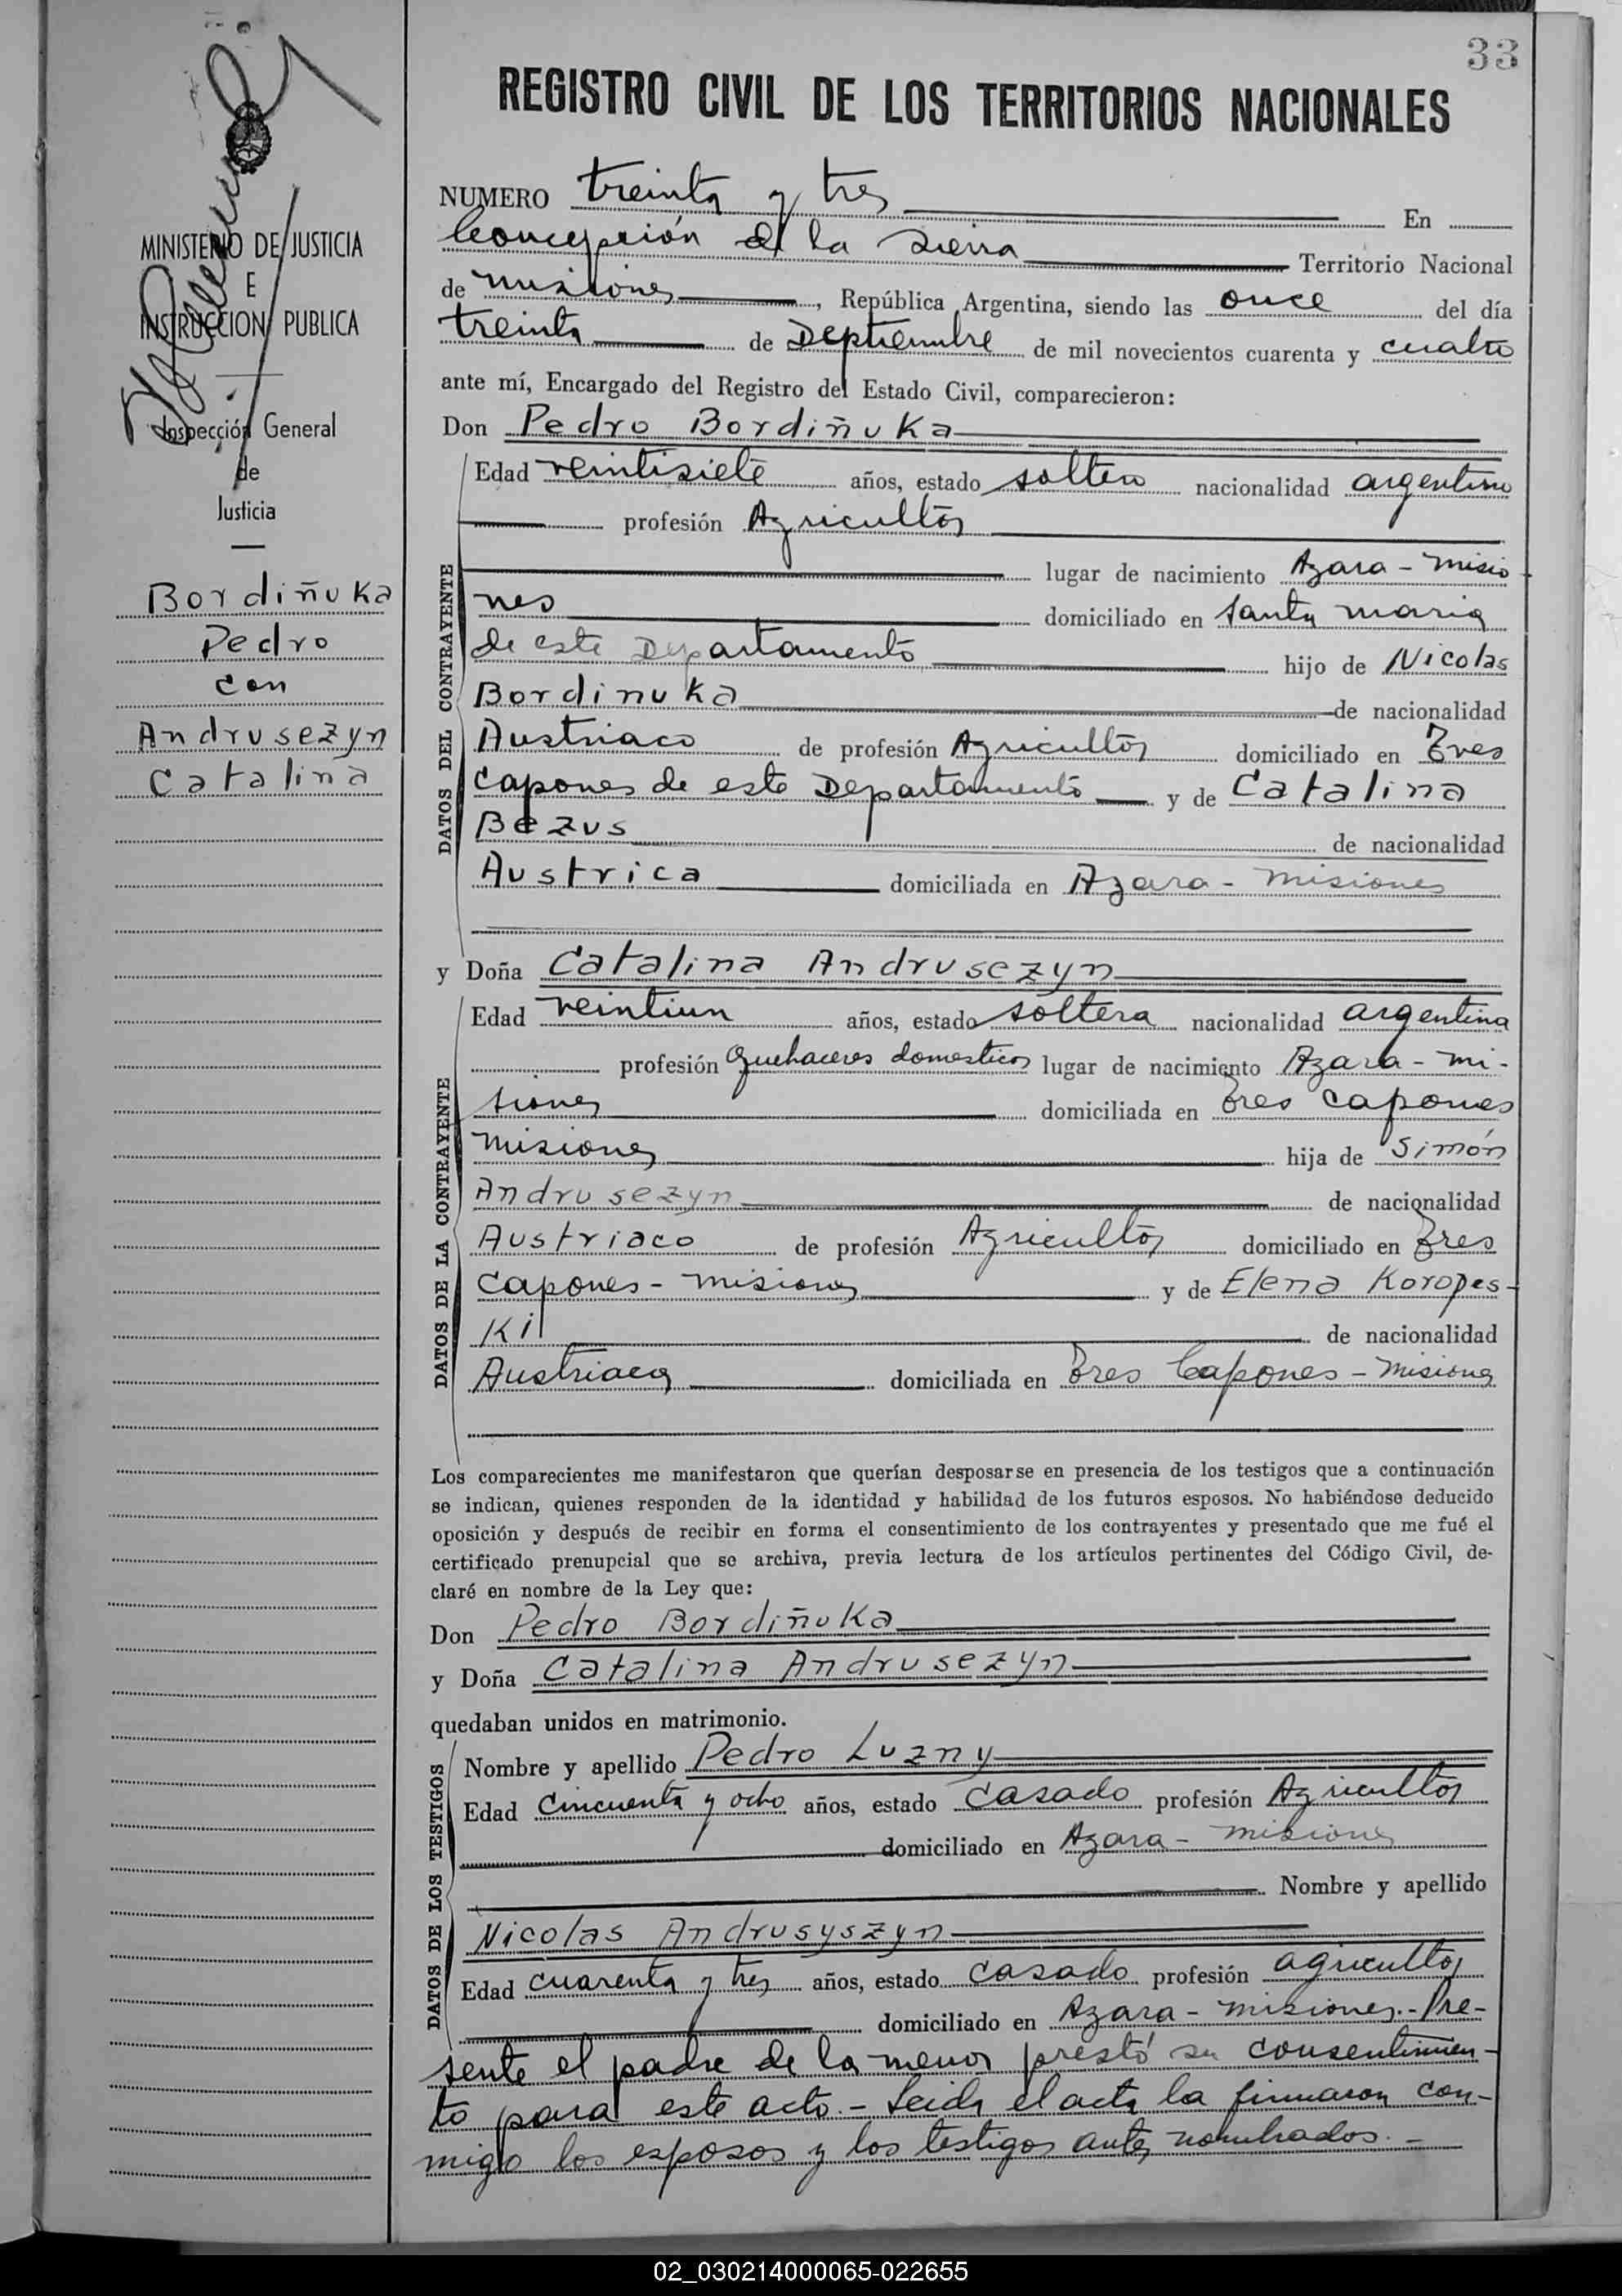 33
REGISTRO CIVIL DE LOS TERRITORIOS NACIONALES
MINISTERIO DE JUSTICIA
E
INSTRUCCION PUBLICA
Inspección General
de
Justicia
Bordiñuka
Pedro
con
Andrusezyn
Catalina
NUMERO treinta y tres En
Concepción de la Sierra Territorio Nacional
de Misiones, República Argentina, siendo las once del día
treinta de Septiembre de mil novecientos cuarenta y cuatro
ante mí, Encargado del Registro del Estado Civil, comparecieron:
Don Pedro Bordiñuka
DATOS DEL CONTRAYENTE
Edad veintisiete años, estado soltero nacionalidad argentino
profesión Agricultor
lugar de nacimiento Azara - Misio
nes domiciliado en Santa Maria
de este Departamento hijo de Nicolas
Bordinuka de nacionalidad
Austriaco de profesión Agricultor domiciliado en Tres
Capones de este Departamento y de Catalina
Bezus de nacionalidad
Austrica domiciliada en Azara - Misiones
y Doña Catalina Andrusezyn
DATOS DE LA CONTRAYENTE
Edad veintiun años, estado soltera nacionalidad argentina
profesión Quehaceres domesticos lugar de nacimiento Azara - Mi-
siones domiciliada en Tres Capones
Misiones hija de Simón
Andrusezyn de nacionalidad
Austriaco de profesión Agricultor domiciliado en Tres
Capones - Misiones y de Elena Koropes-
Ki de nacionalidad
Austriaca domiciliada en Tres Capones - Misiones
Los comparecientes me manifestaron que querían desposarse en presencia de los testigos que a continuación
se indican, quienes responden de la identidad y habilidad de los futuros esposos. No habiéndose deducido
oposición y después de recibir en forma el consentimiento de los contrayentes y presentado que me fué el
certificado prenupcial que se archiva, previa lectura de los artículos pertinentes del Código Civil, de-
claré en nombre de la Ley que:
Don Pedro Bordiñuka
y Doña Catalina Andrusezyn
quedaban unidos en matrimonio.
DATOS DE LOS TESTIGOS
Nombre y apellido Pedro Luzny
Edad Cincuenta y ocho años, estado Casado profesión Agricultor
domiciliado en Azara - Misiones
Nombre y apellido
Nicolas Andrusyszyn
Edad cuarenta y tres años, estado Casado profesión agricultor
domiciliado en Azara - Misiones.- Pre-
sente el padre de la menor prestó su consentimien-
to para este acto.- Leida el acta la firmaron con-
migo los esposos y los testigos antes nombrados.-
02_030214000065-022655